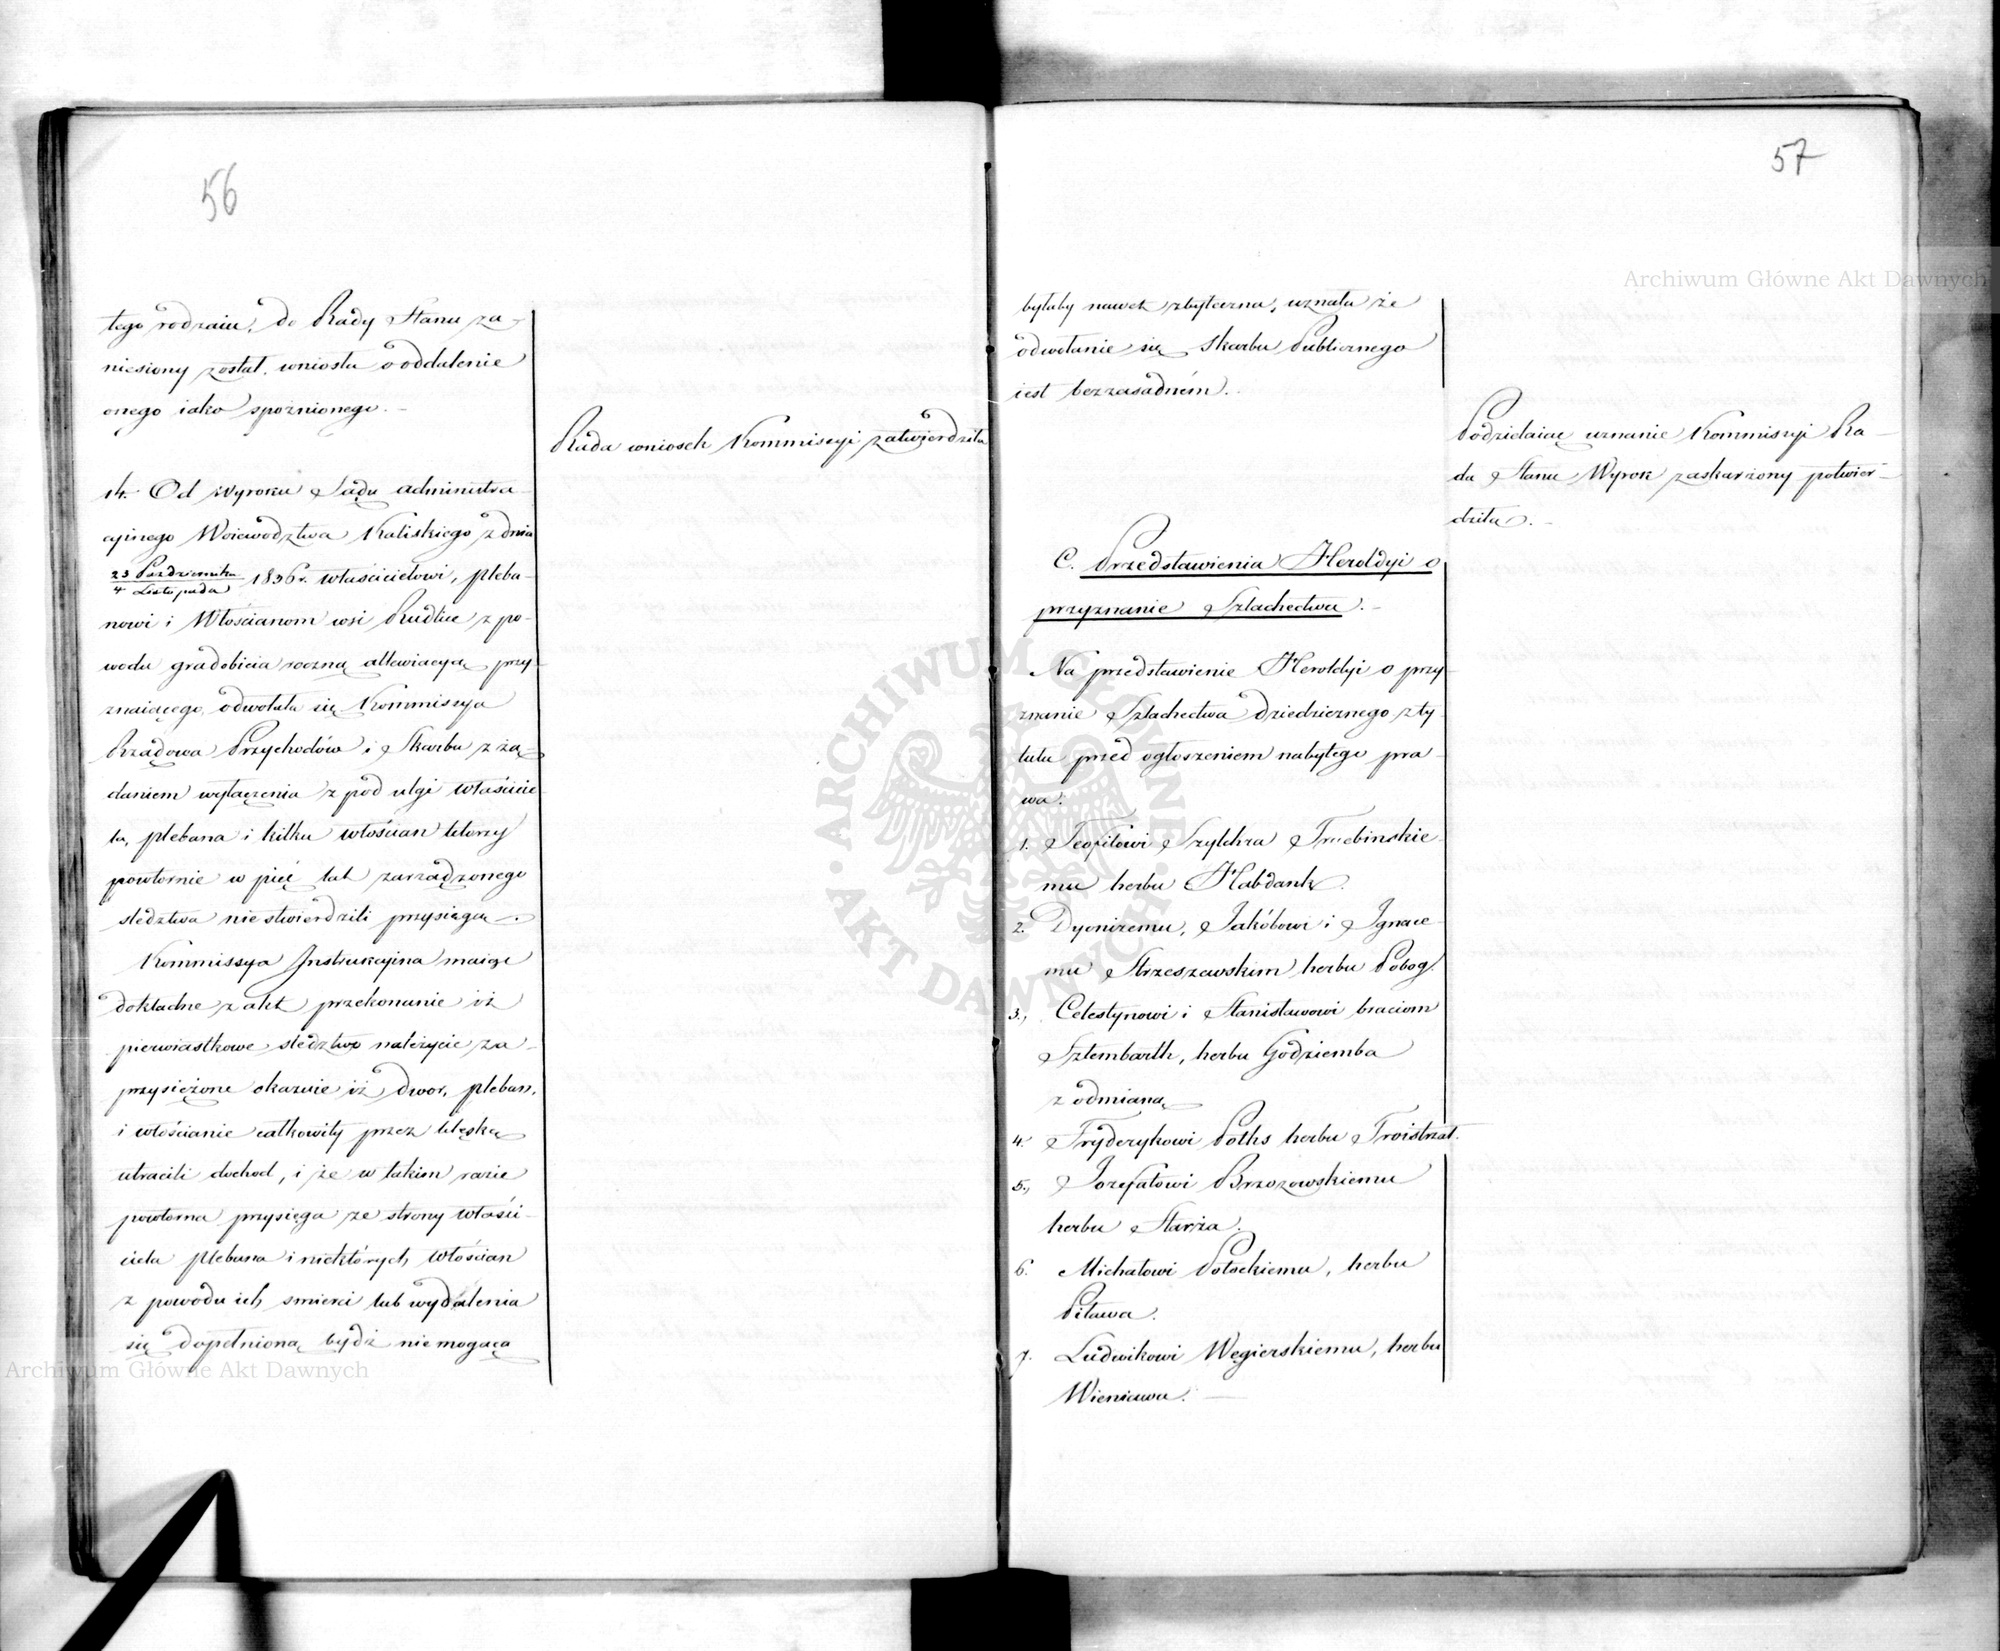 56
tego rodzaiu, do Rady Stanu za-
niesiony został, wniosła o oddalenie
onego iako spoznionego.-
Rada wniosek Kommissyi zatwierdziła
14. Od Wyroku Sądu administra-
cyinego Woiewodztwa Kaliskiego z dnia
23 Pazdziernika
4 Listopada
1836 r. właścicielowi, pleba-
nowi i Włościanom wsi Rudlice z po-
wodu gradobicia roczną allewiacyą przy-
znaiącego, odwołała się Kommissya
Rządowa Przychodów i Skarbu z żą-
daniem wyłączenia z pod ulgi właścicie-
la, plebana i kilku włościan którzy
powtornie w pięć lat zarządzonego
sledztwa nie stwierdzili przysięgą.-
Kommissya Instrukcyina maiąc
dokładne z akt przekonanie iż
pierwiastkowe sledztwo należycie za-
przysiężone okazuie iż dwor, pleban,
i włościanie całkowity przez klęskę
utracili dochod, i że w takim razie
powtorna przysięga ze strony właści-
ciela plebana i niektórych włościan
z powodu ich smierci lub wydalenia
się dopełnioną bydź niemogąca
57
byłaby nawet zbyteczna, uznała że
odwołanie się Skarbu Publicznego
iest bezzasadném.
Podzielaiąc uznanie Kommissyi Ra-
da Stanu Wyrok zaskarżony potwier-
dziła.-
C. Przedstawienia Heroldyi o
przyznanie Szlachectwa.-
Na przedstawienie Heroldyi o przy-
znanie Szlachectwa dziedzicznego z ty-
tułu przed ogłoszeniem nabytego pra-
wa:
1. Teofilowi Szylchra Trzebinskie-
mu herbu Habdank.
2. Dyonizemu, Jakóbowi i Ignace-
mu Strzeszewskim herbu Pobog.
3., Celestynowi i Stanisławowi braciom
Sztembarth, herbu Godziemba
z odmianą
4. Fryderykowi Poths herbu Troistrzał.
5., Jozefatowi Brzozowskiemu
herbu Starża.
6. Michałowi Potockiemu, herbu
Pilawa.
7. Ludwikowi Węgierskiemu, herbu
Wieniawa.
Archiwum Główne Akt Dawnych
Archiwum Główne Akt Dawnych
ARCHIWUM GŁÓWNE AKT DAWNYCH